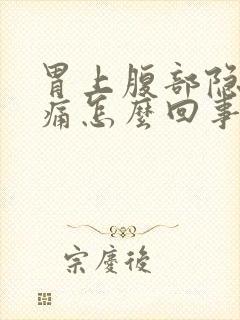 胃上腹部隐
痛怎麼回事
宗慶後